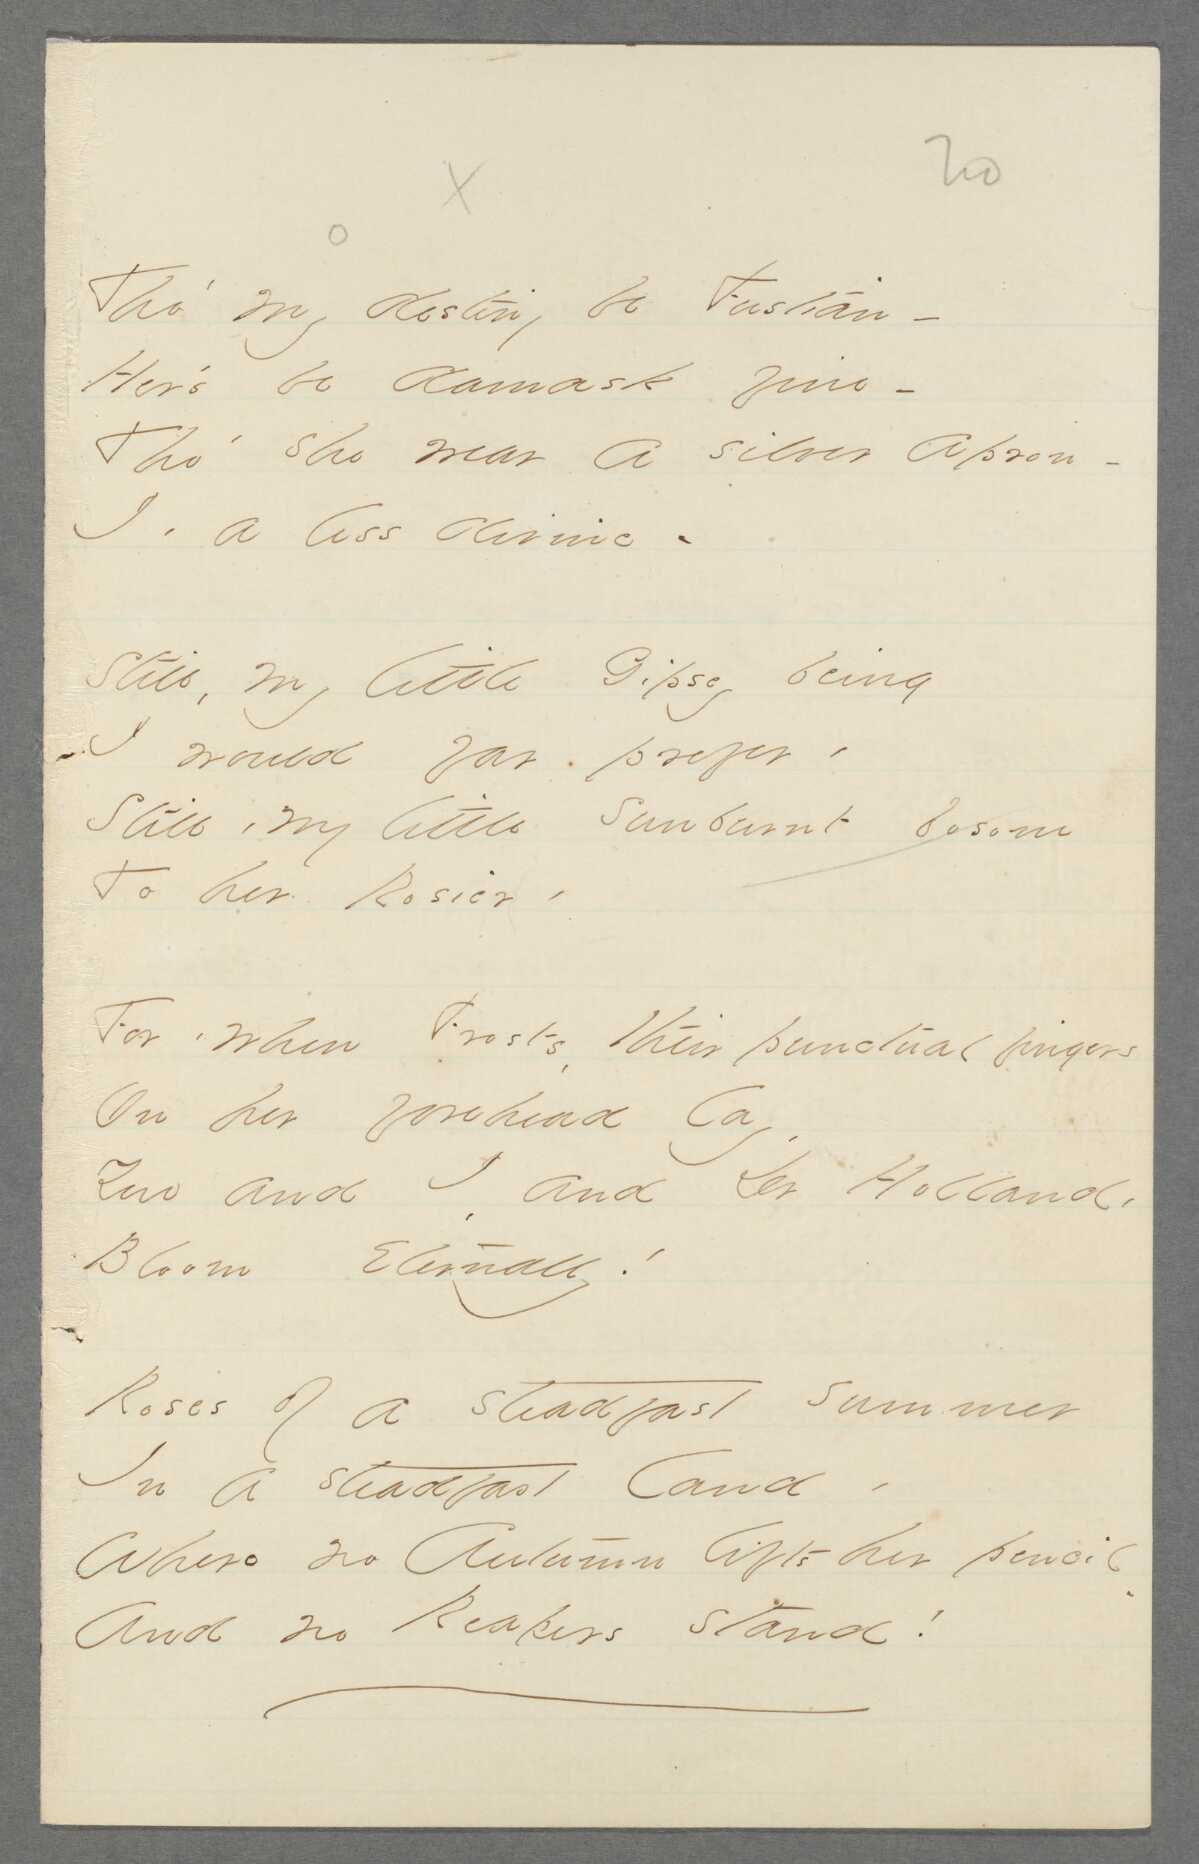 20
X
o
Tho' my destiny be Fustian -
Her's be damask fine -
Tho' she wear a silver apron -
I, a less divine -
Still, my little Gipsey being
I would far prefer,
Still, my little sunburnt bosom
To her Rosier,
For, when Frosts, their punctual fingers
On her forehead lay,
You and I, and Dr Holland,
Bloom Eternally!
Roses of a steadfast summer
In a steadfast land,
Where no Autumn lifts her pencil,
And no Reapers stand!